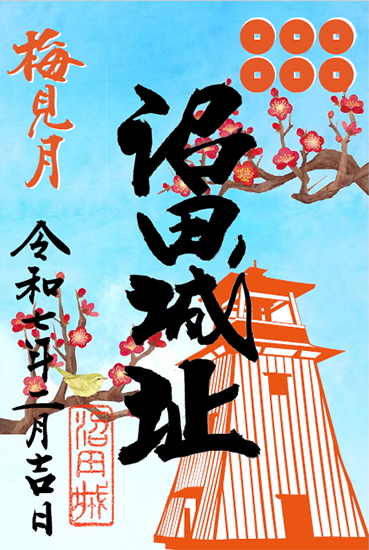 沼田城址
梅見月
令和七年二月吉日
沼田城